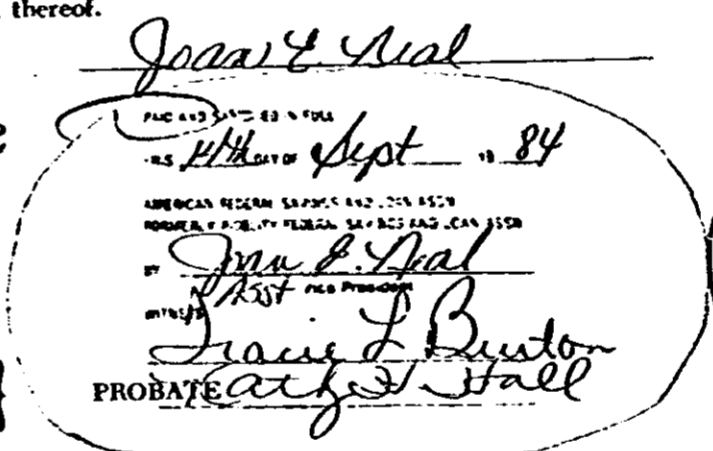 thereof.
Joan E. Neal
PAID AND SATISFIED IN FULL
THIS DAY OF Sept 19 84
AMERICAN FEDERAL SAVINGS AND LOAN ASSN
FORMERLY FIDELITY FEDERAL SAVINGS AND LOAN ASSN
BY Joan E. Neal
Asst Vice President
WITNESS
Tracie L Burton
PROBATE Cathy H Hall